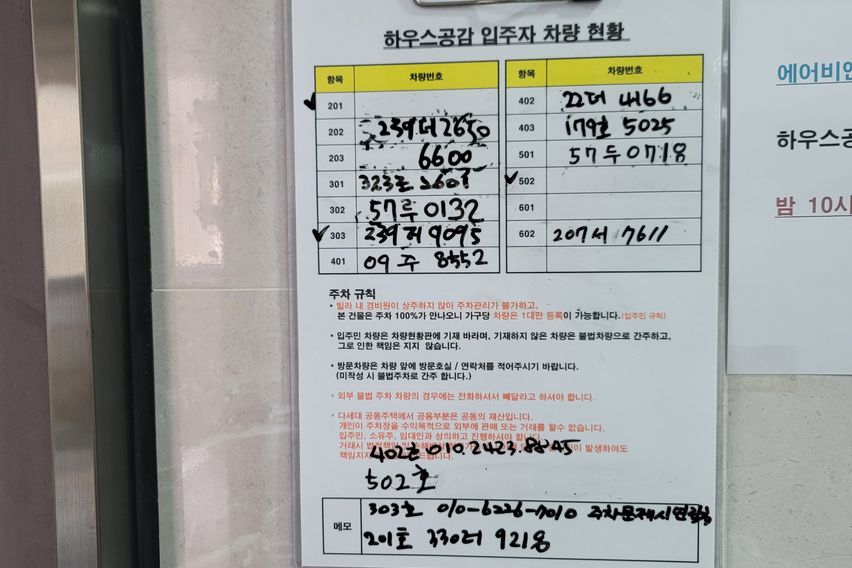 하우스공감 입주자 차량 현황
항목 차량번호
201
202 239더2650
203 6600
301
302 57루0132
303 239저9095
401 09주 8552
항목 차량번호
402 22더 4166
403 179호 5025
501 57두0718
502
601
602 207서 7611
주차 규칙
• 빌라 내 경비원이 상주하지 않아 주차관리가 불가하고,
본 건물은 주차 100%가 안나오니 가구당 차량은 1대만 등록이 가능합니다.(입주민 규칙)
• 입주민 차량은 차량현황판에 기재 바라며, 기재하지 않은 차량은 불법차량으로 간주하고,
그로 인한 책임은 지지 않습니다.
• 방문차량은 차량 앞에 방문호실 / 연락처를 적어주시기 바랍니다.
(미작성 시 불법주차로 간주 합니다.)
• 외부 불법 주차 차량의 경우에는 전화하셔서 빼달라고 하셔야 합니다.
• 다세대 공동주택에서 공용부분은 공동의 재산입니다.
개인이 주차장을 수익목적으로 외부에 판매 또는 거래를 할수 없습니다.
입주민, 소유주, 임대인과 상의하고 진행하셔야 합니다.
거래시 이 발생하여도
책임지지
402호 010.2423.8845
502호
메모
303호 010-6226-7010 주차문제시연락
201호 330더 9218
에어비앤
하우스공
밤 10시